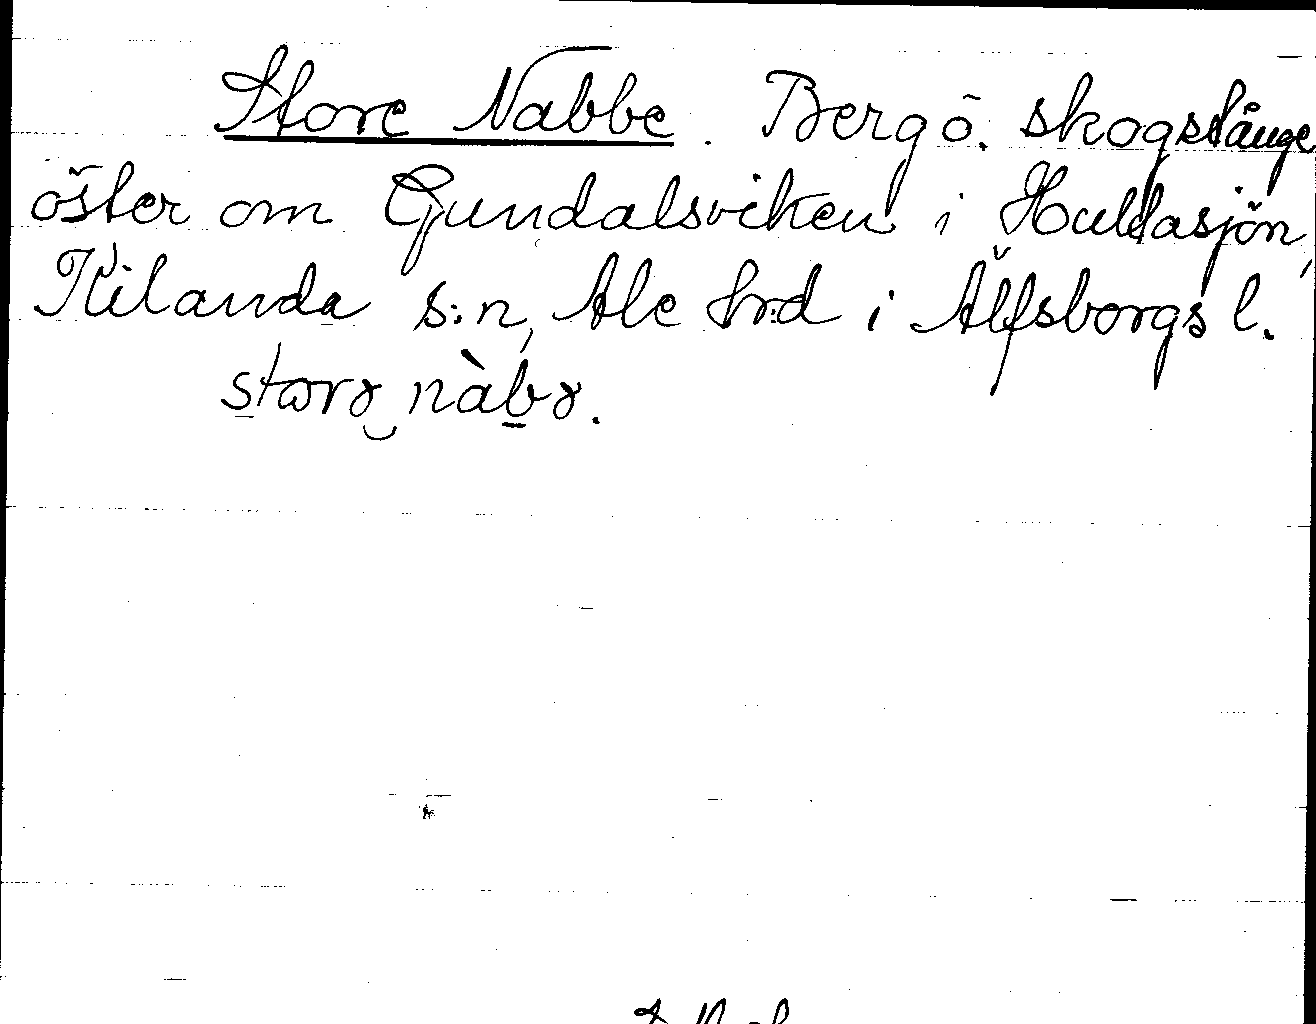 Store Nabbe. Berg o. skogstånge
öster om Gundalsviken i Hultasjön,
Kilanda s:n, Ale hrd i Älfsborgs l.
storə nàbə.